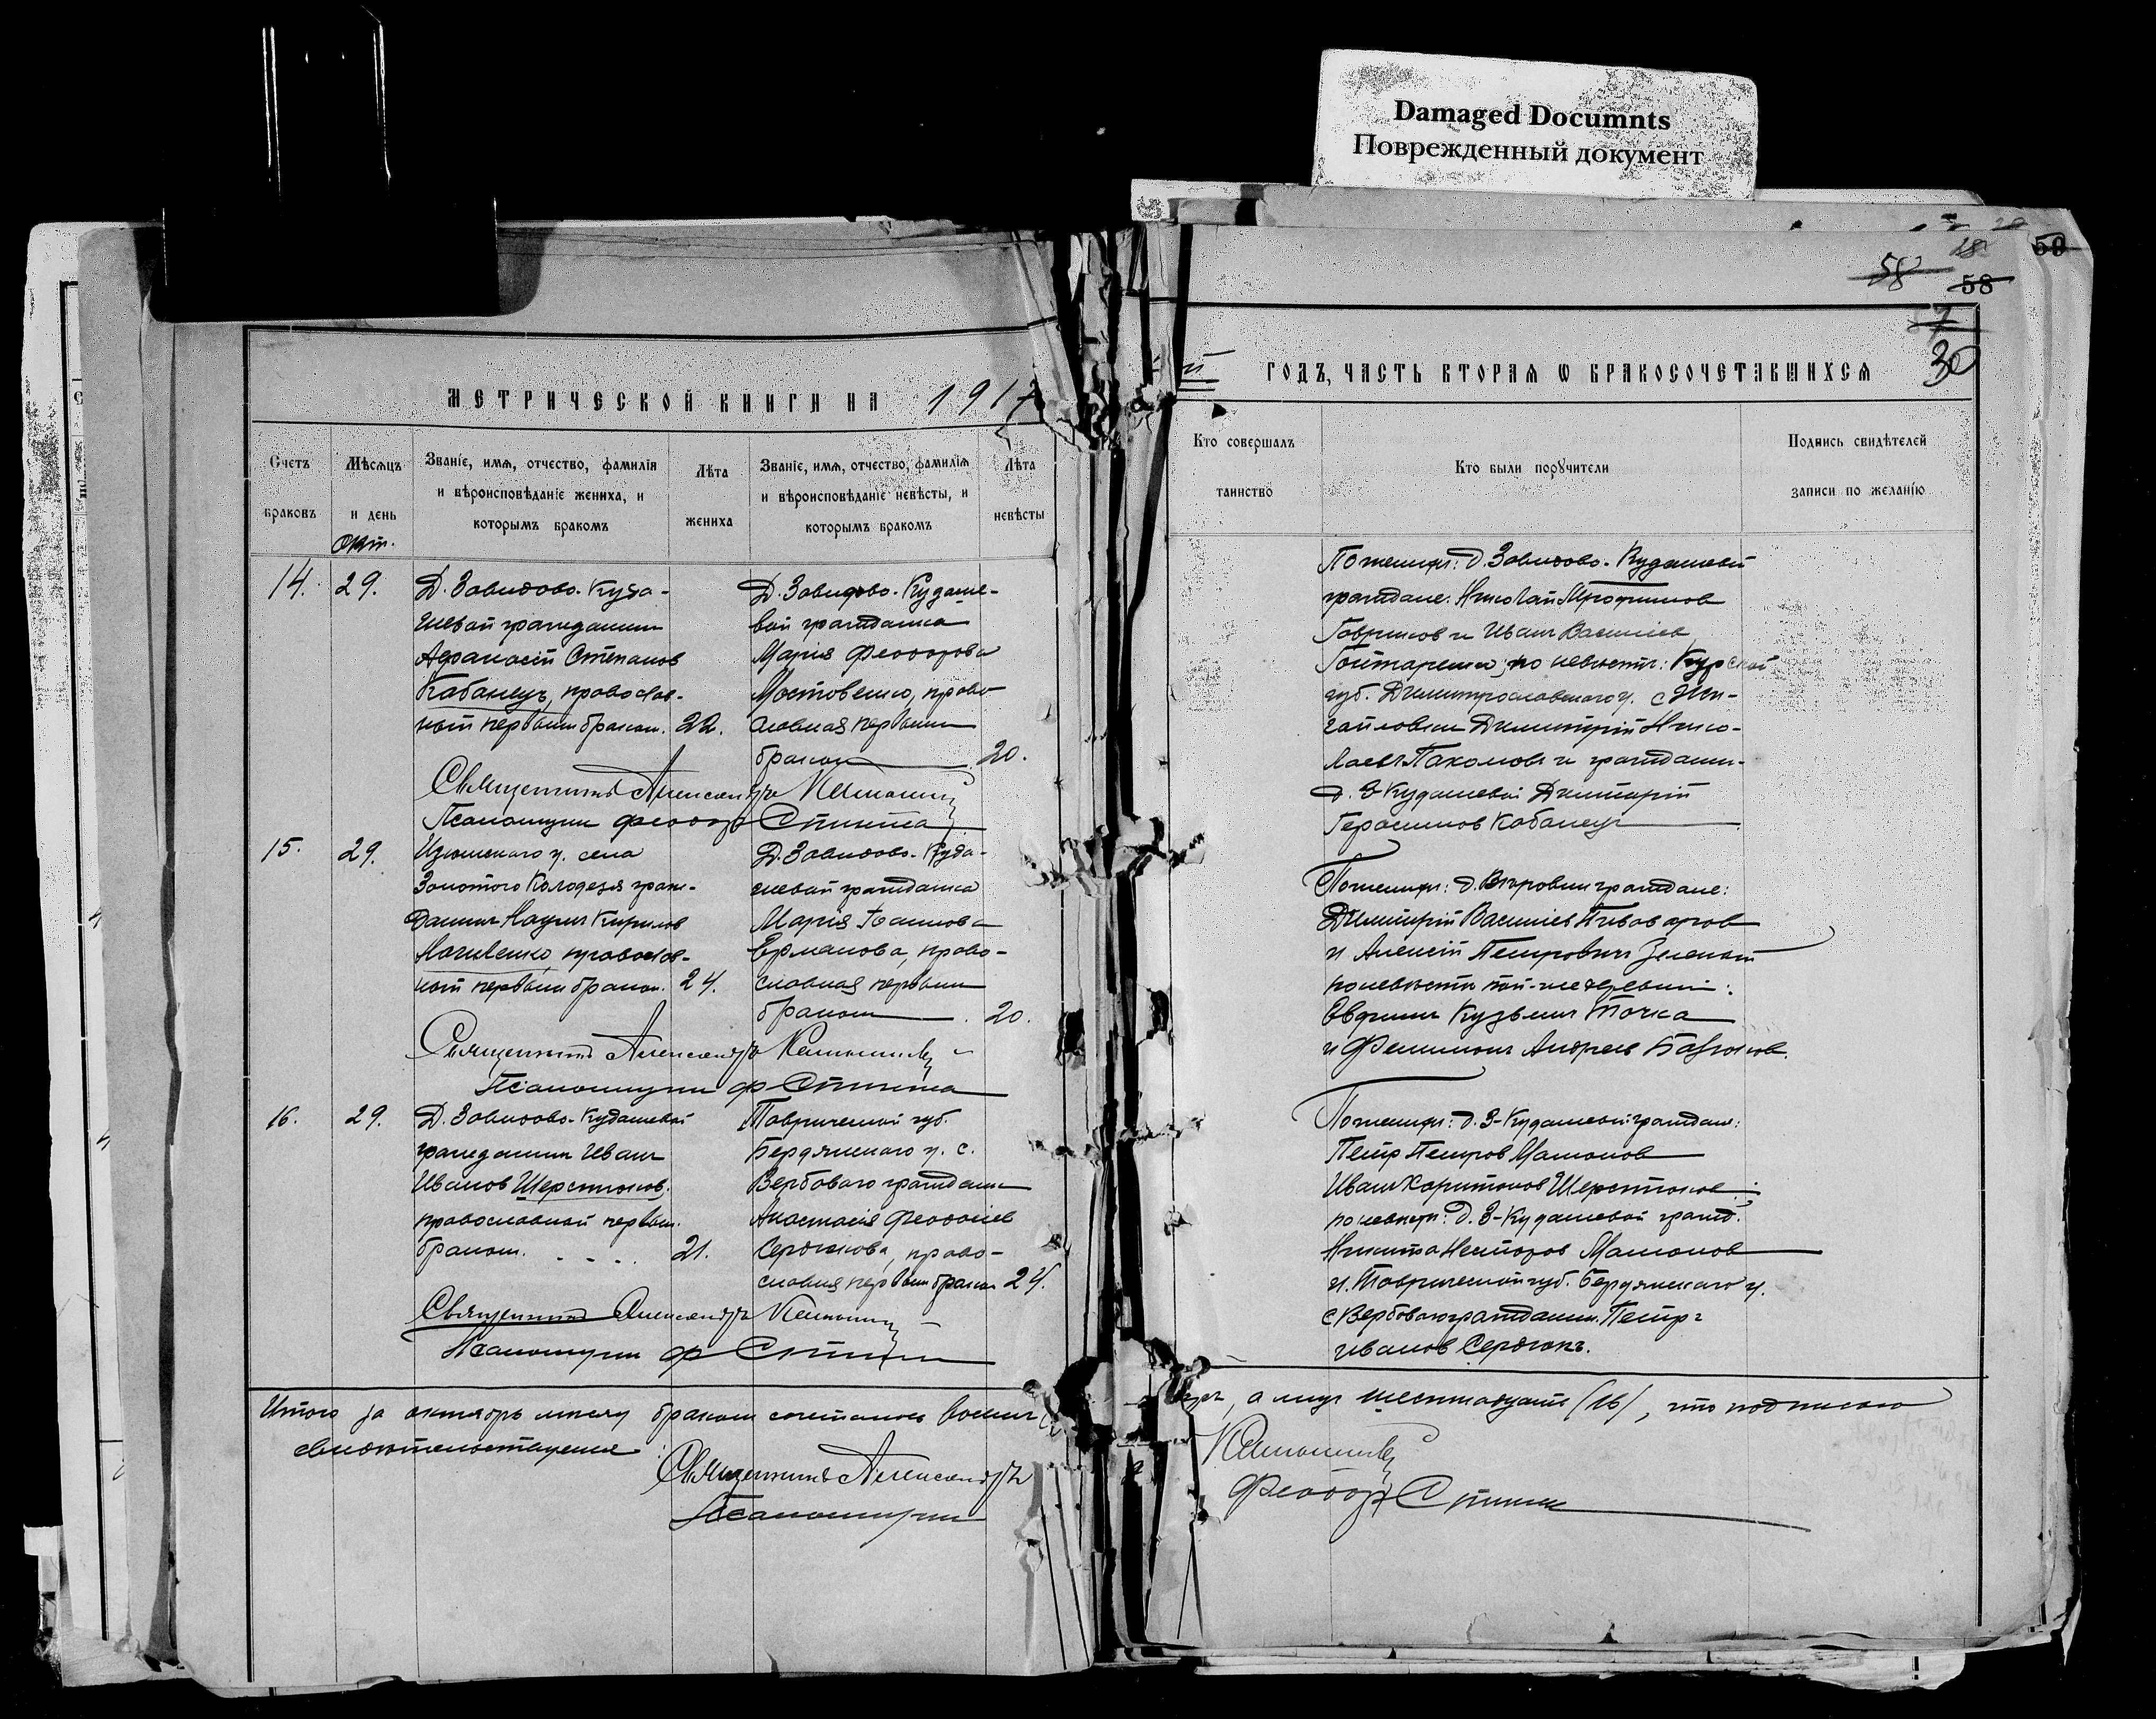 Damaged Documnts
Поврежденный документ
58
58
59
7
30
МЕТРИЧЕСКОЙ КНИГИ НА 1917
й ГОДЪ, ЧАСТЬ ВТОРАЯ Ѡ БРАКОСОЧЕТАВШИХСЯ
Счетъ браковъ
Мѣсяцъ и день
Званіе, имя, отчество, фамилія
и вѣроисповѣданіе жениха, и
которымъ бракомъ
Лѣта жениха
Званіе, имя, отчество, фамилія
и вѣроисповѣданіе невѣсты, и
которымъ бракомъ
Лѣта невѣсты
Кто совершалъ таинство
Кто были поручители
Подпись свидѣтелей
записи по желанію
Окт.
14. 29.
Д. Завидово-Куда-
шевой гражданинъ
Афанасій Степановъ
Кабанецъ, православ-
ный первымъ бракомъ. 22.
Д. Завидово-Кудаше-
вой гражданка
Марія Феодорова
Мостовенко, право
славная первымъ
бракомъ 20.
Священникъ Александръ
Псаломщик Феодоръ Спинка
По женихѣ: д. Завидово-Кудашевой
граждане: Николай Трофимовъ
Гавриловъ и Иванъ Васильевъ
по невѣстѣ: Курской
губ. Димитріевскаго у. с.
Димитрій Нико-
лаевъ Пахомовъ и гражданин
д. З-Кудашевой Димитрій
Герасимовъ Кабанецъ
15. 29.
Изюмскаго у. села
Золотого Колодезя граж-
данинъ Наумъ Кириловъ
православ-
ный первымъ бракомъ. 24.
Д. Завидово-Куда-
шевой гражданка
Марія Іоаннова
Ермакова, право-
славная первымъ
бракомъ. 20.
Священникъ Александръ
Псаломщик Ф Спинка
По женихѣ: д. Вѣровки граждане:
Димитрій Васильевъ Пивоваровъ
и Алексій Петровичъ Зеленый
по невѣстѣ той-же деревни:
Кузьмичъ Точка
и Филимонъ Андреевъ
16. 29.
Д. Завидово-Кудашевой
гражданинъ Иванъ
Ивановъ Шерстюковъ.
православный первым.
бракомъ. 21.
Таврической губ.
Бердянскаго у. с.
Вербоваго граждан
Анастасія Феодосіев
Сердюкова, право-
славная первым браком 24.
Священникъ Александръ
Псаломщик Ф Спинка
По женихѣ: д. З-Кудашевой граждане:
Петръ Петровъ Мамоновъ
Иванъ Харитоновъ Шерстюковъ;
по невѣстѣ: д. З-Кудашевой гражд.
Никита Несторовъ Мамоновъ
и Таврической губ. Бердянскаго у.
с Вербоваго гражданин Петръ
Ивановъ Сердюкъ.
Итого за октябрь мѣсяцъ бракомъ сочеталось восемь паръ, а лицъ шестнадцать (16), что подписью
свидѣтельствуемъ:
Священникъ Александръ
Псаломщик Феодоръ Спинка